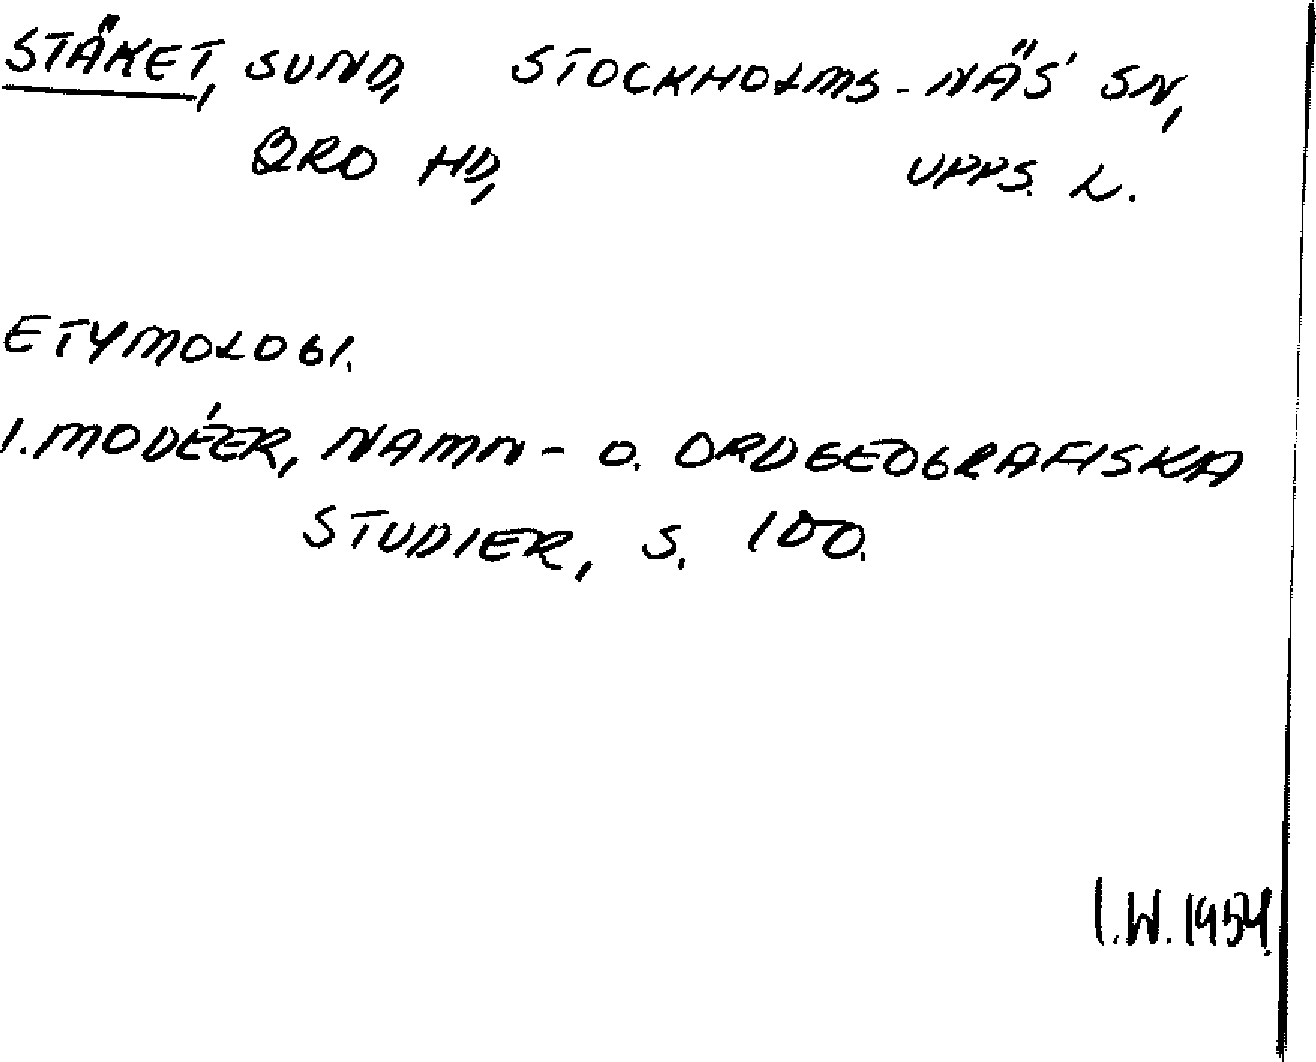 STÄKET, SUND, STOCKHOLMS-NÄS SN,
BRO HD, UPPS. L.
ETYMOLOGI.
I. MODÉER, NAMN- O. ORDGEOGRAFISKA
STUDIER, S. 100.
I.W. 1954.